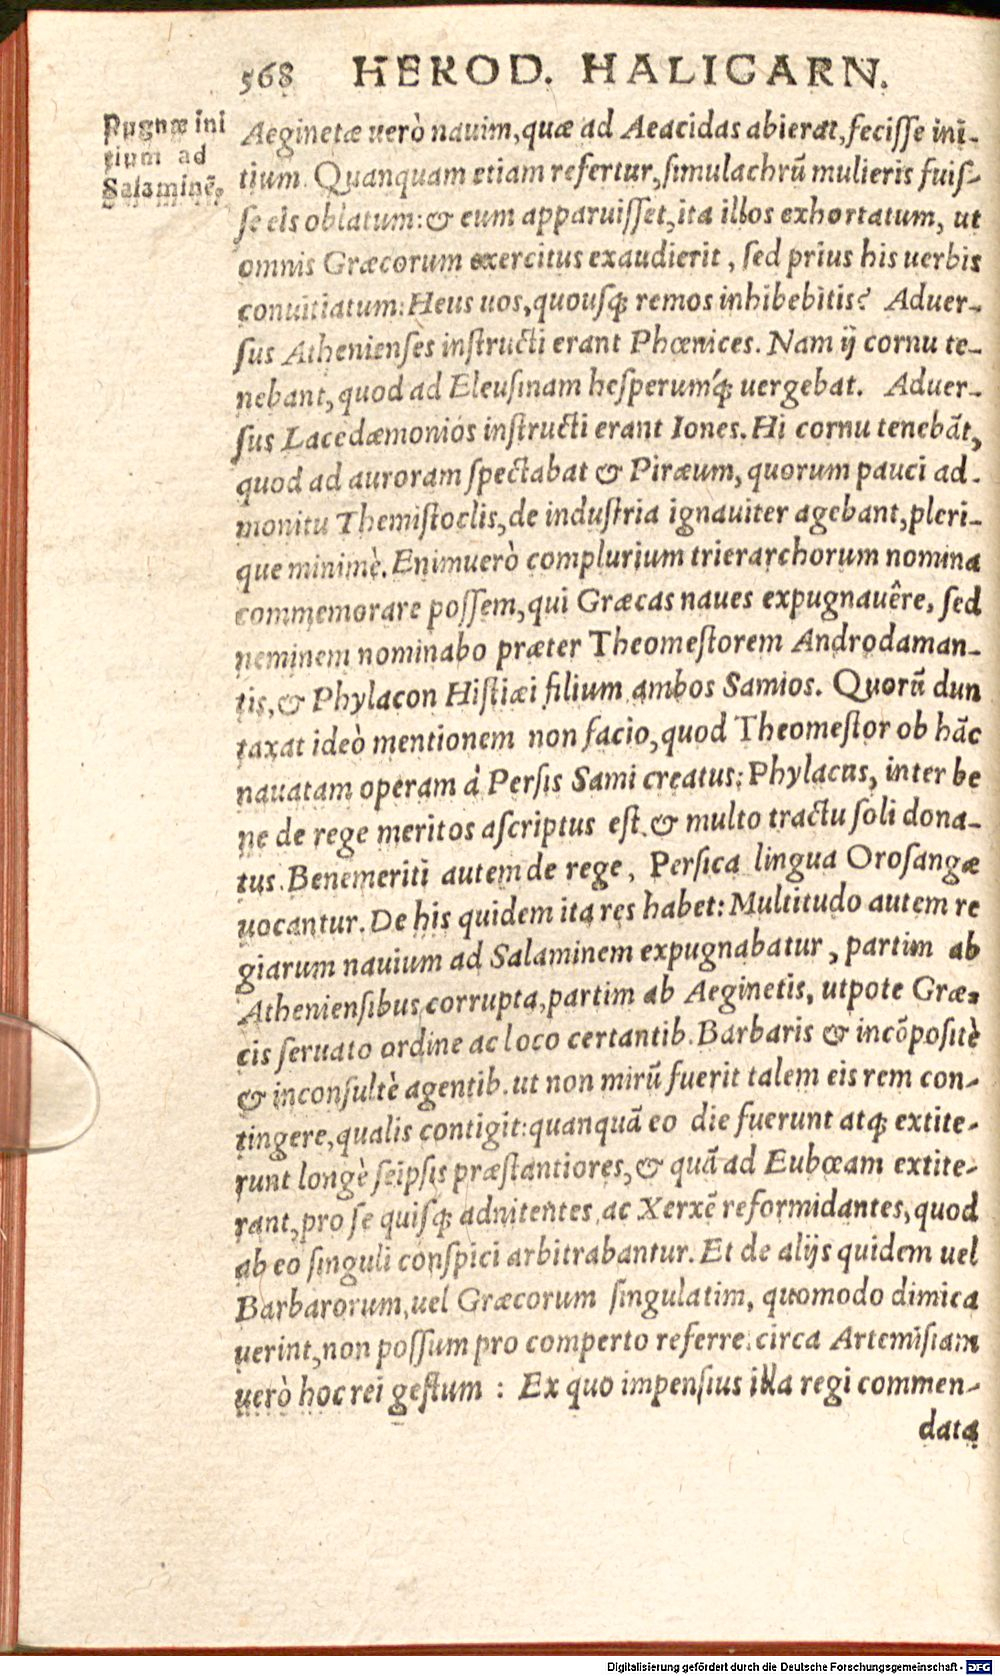 568 HEROD. HALICARN.
Pugnæ ini
tium ad
Salaminē.
Aeginetæ uerò nauim, quæ ad Aeacidas abierat, feciſſe ini-
tium. Quanquam etiam refertur, ſimulachrū mulieris fuiſ-
ſe eis oblatum: & eum apparuiſſet, ita illos exhortatum, ut
omnis Græcorum exercitus exaudierit, ſed prius his uerbis
conuitiatum: Heus uos, quouſq; remos inhibebitis? Aduer-
ſus Athenienſes inſtructi erant Phœnices. Nam ij cornu te-
nebant, quod ad Eleuſinam heſperumq́; uergebat. Aduer-
ſus Lacedæmonios inſtructi erant Iones. Hi cornu tenebāt,
quod ad auroram ſpectabat & Piræum, quorum pauci ad-
monitu Themiſtoclis, de induſtria ignauiter agebant, pleri-
que minimè. Enimuerò complurium trierarchorum nomina
commemorare poſſem, qui Græcas naues expugnauêre, ſed
neminem nominabo præter Theomeſtorem Androdaman-
tis, & Phylacon Hiſtiæi filium ambos Samios. Quorū dun
taxat ideò mentionem non facio, quod Theomeſtor ob hāc
nauatam operam à Perſis Sami creatus: Phylacus, inter be
ne de rege meritos aſcriptus eſt, & multo tractu ſoli dona-
tus. Benemeriti autem de rege, Perſica lingua Oroſangæ
uocantur. De his quidem ita res habet: Multitudo autem re
giarum nauium ad Salaminem expugnabatur, partim ab
Athenienſibus corrupta, partim ab Aeginetis, utpote Græ-
cis ſeruato ordine ac loco certantib. Barbaris & incōpoſitè
& inconſultè agentib. ut non mirū fuerit talem eis rem con-
tingere, qualis contigit: quanquā eo die fuerunt atq; extite-
runt longè ſeipſis præſtantiores, & quā ad Eubœam extite-
rant, pro ſe quiſq; adnitentes ac Xerxē reformidantes, quod
ab eo ſinguli conſpici arbitrabantur. Et de alijs quidem uel
Barbarorum, uel Græcorum ſingulatim, quomodo dimica
uerint, non poſſum pro comperto referre. circa Artemiſiam
uerò hoc rei geſtum : Ex quo impenſius illa regi commen-
data
Digitalisierung gefördert durch die Deutsche Forschungsgemeinschaft - DFG